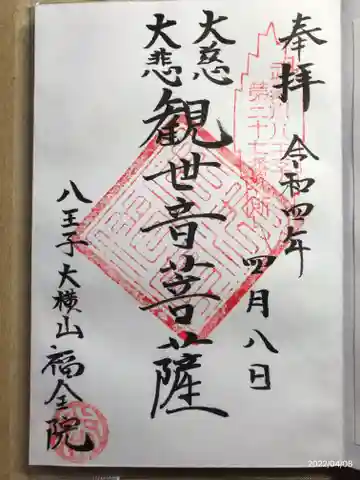 奉拝
令和四年
四月八日
大慈
大悲
観世音菩薩
八王子大横山
福全院
2022/04/08